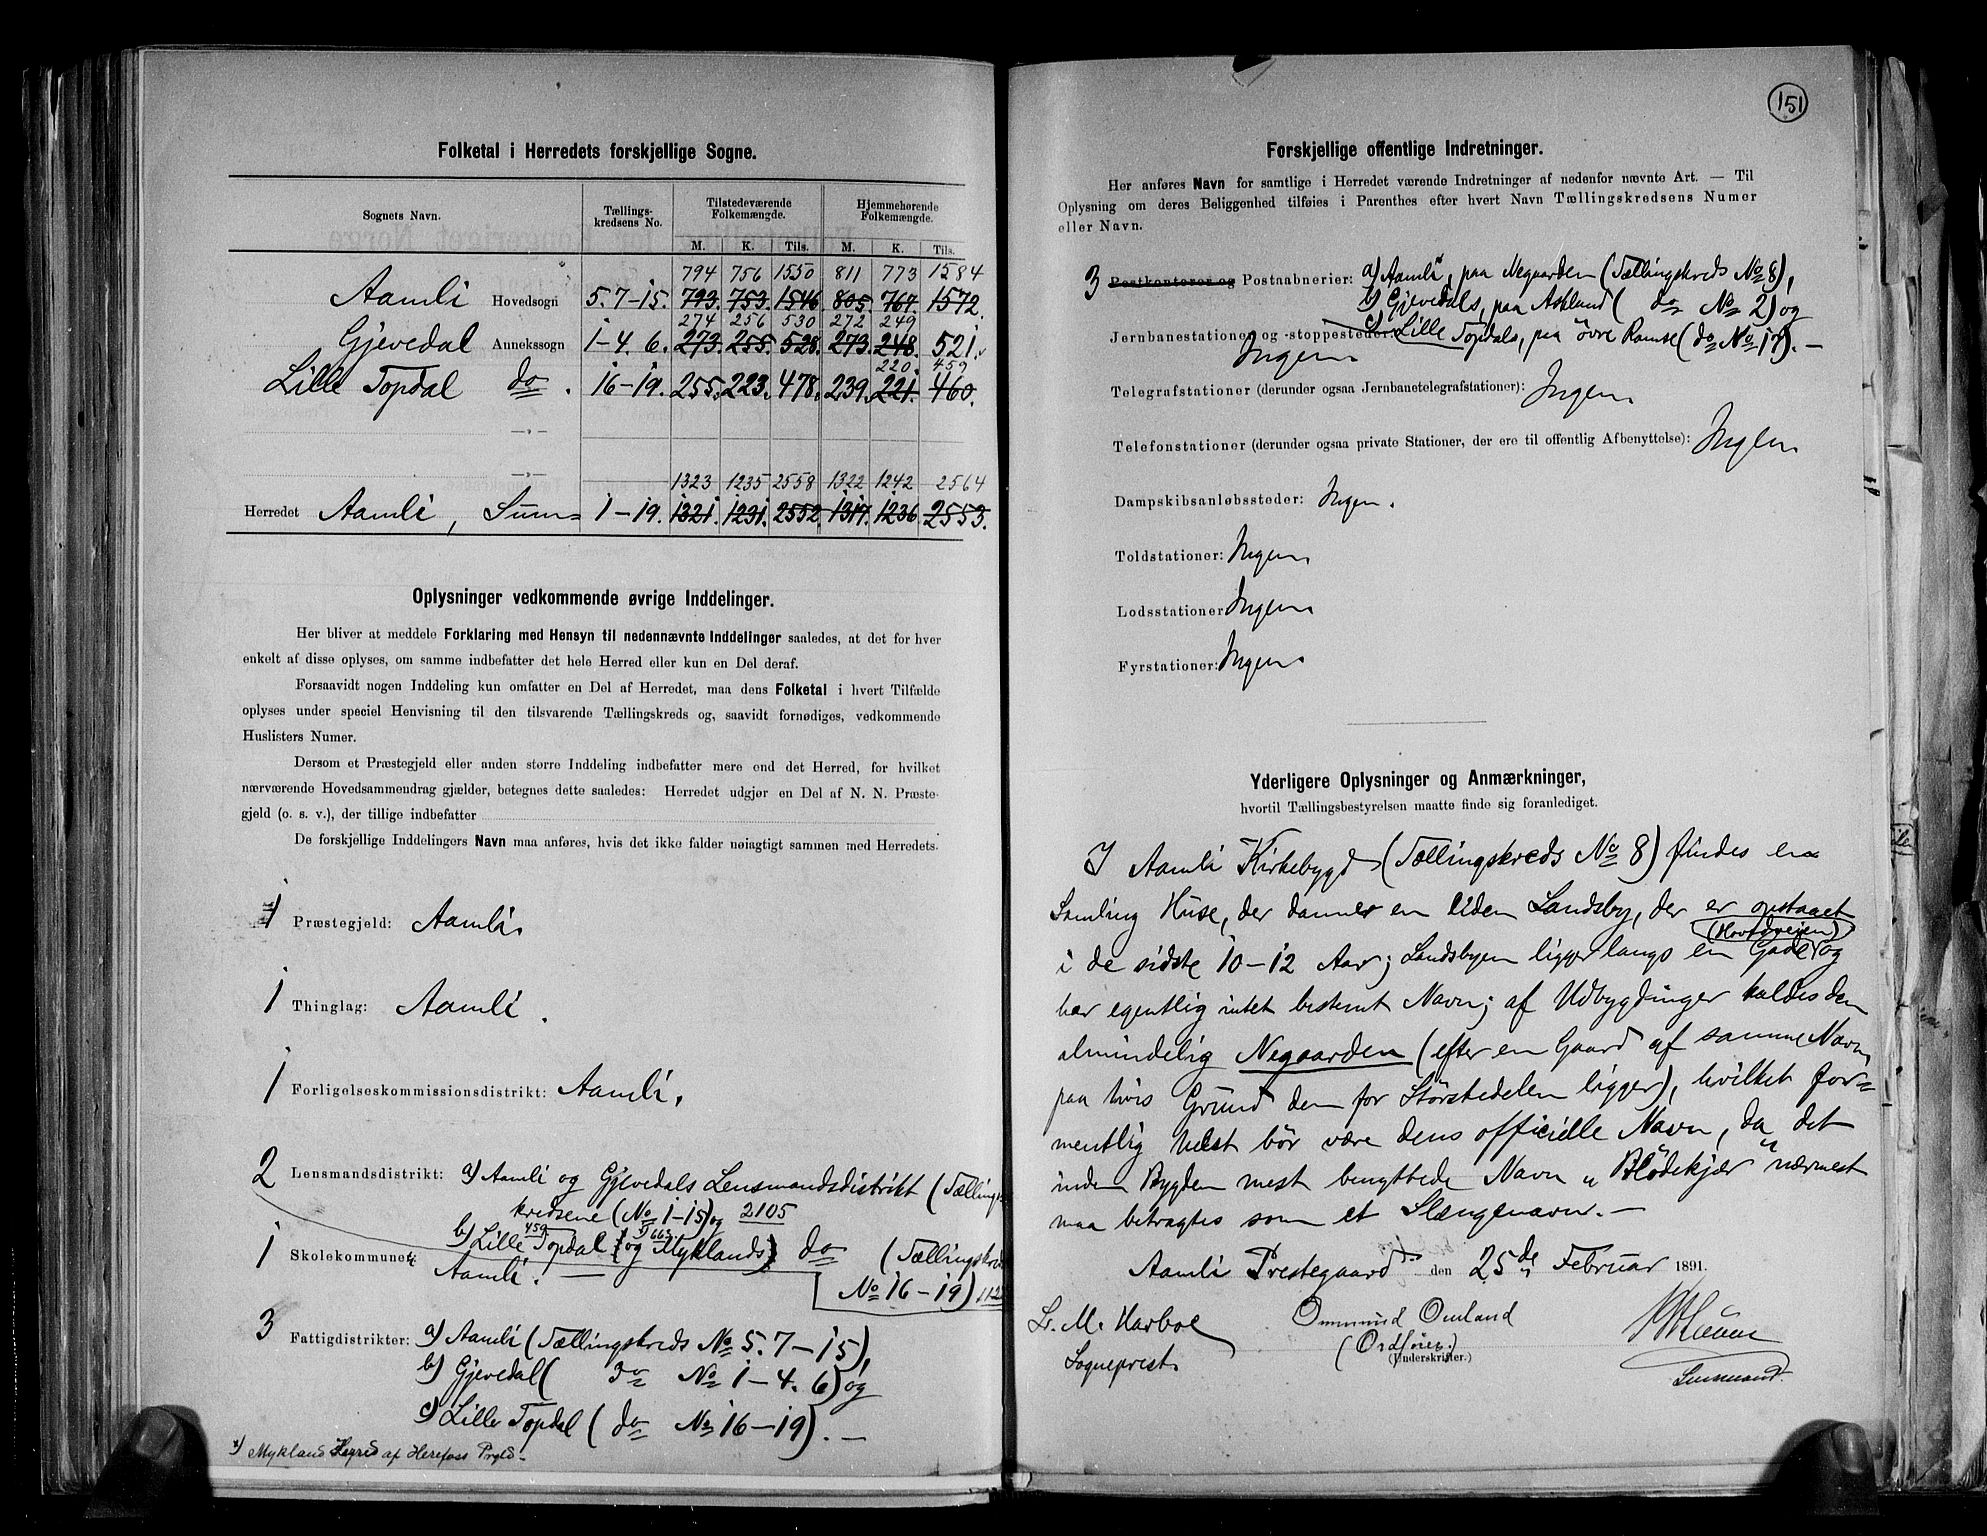 Folketal i Herredets forskjellige Sogne.
Sognets Navn. Tællings-kredsens No. Tilstedeværende Folkemængde. Hjemmehørende Folkemængde.
M. K. Tils. M. K. Tils.
794 756 1550 811 773 1584
Aamli Hovedsogn 5. 7-15. 793. 753. 1546 805. 767. 1572.
274 256 530 272 249
Gjevedal Annekssogn 1-4. 6. 273. 255. 528. 273. 248. 521.
220. 459
Lille Topdal do. 16-19. 255. 223. 478. 239. 221. 460.
—„—
—„—
1323 1235 2558 1322 1242 2564
Herredet Aamli, Sum= 1-19. 1321. 1231. 2552 1317. 1236 2553.
Oplysninger vedkommende øvrige Inddelinger.
Her bliver at meddele Forklaring med Hensyn til nedennævnte Inddelinger saaledes, at det for hver
enkelt af disse oplyses, om samme indbefatter det hele Herred eller kun en Del deraf.
Forsaavidt nogen Inddeling kun omfatter en Del af Herredet, maa dens Folketal i hvert Tilfælde
oplyses under speciel Henvisning til den tilsvarende Tællingskreds og, saavidt fornødiges, vedkommende
Huslisters Numer.
Dersom et Præstegjeld eller anden større Inddeling indbefatter mere end det Herred, for hvilket
nærværende Hovedsammendrag gjælder, betegnes dette saaledes: Herredet udgjør en Del af N. N. Præste-
gjeld (o. s. v.), der tillige indbefatter
De forskjellige Inddelingers Navn maa anføres, hvis det ikke falder nøiagtigt sammen med Herredets.
1 Præstegjeld: Aamli.
1 Thinglag: Aamli.
1 Forligelseskommissionsdistrikt: Aamli.
2 Lensmandsdistrikt: a) Aamli og Gjevedals Lensmandsdistrikt (Tællings
kredsene (No 1-15) og 2105
459 663
b) Lille Topdal (og Myklands) do (Tællingskrds
1 Skolekommune: Aamli. —
No 16-19) 112
3 Fattigdistrikter: a) Aamli (Tællingskreds No 5. 7-15),
b) Gjevedal ( do No 1-4. 6) og
c) Lille Topdal ( do No 16-19). —
*) Mykland Herred af Herefoss Prgld.
151
Forskjellige offentlige Indretninger.
Her anføres Navn for samtlige i Herredet værende Indretninger af nedenfor nævnte Art. — Til
Oplysning om deres Beliggenhed tilføies i Parenthes efter hvert Navn Tællingskredsens Numer
eller Navn.
3 Postkontorer og Postaabnerier: a) Aamli, paa Negaarden (Tællingskreds No 8),
b) Gjevedals, paa Askland ( do No 2) og
c) Lille Topdals, paa øvre Ramse (do No 17). —
Jernbanestationer og -stoppesteder: Ingen
Telegrafstationer (derunder ogsaa Jernbanetelegrafstationer): Ingen.
Telefonstationer (derunder ogsaa private Stationer, der ere til offentlig Afbenyttelse): Ingen.
Dampskibsanløbssteder: Ingen.
Toldstationer: Ingen.
Lodsstationer Ingen.
Fyrstationer: Ingen.
Yderligere Oplysninger og Anmærkninger,
hvortil Tællingsbestyrelsen maatte finde sig foranlediget.
I Aamli Kirkebygd (Tællingskreds No 8) findes en
Samling Huse, der danner en liden Landsby, der er opstaaet
(Hovedveien)
i de sidste 10-12 Aar; Landsbyen ligger langs en Gade og
har egentlig intet bestemt Navn; af Udbygdinger kaldes den
almindelig Negaarden (efter en Gaard af samme Navn,
paa hvis Grund den for Størstedelen ligger), hvilket for=
mentlig helst bör være dens officielle Navn, da det
inden Bygden mest benyttede Navn „Blödekjær" nærmest
maa betragtes som et Slængenavn. —
Aamli Prestegaard den 25de Februar 1891.
Lr. M. Harboe Ommund Omland
Sogneprest. (Ordförer.)
(Underskrifter.)
Lensmand.